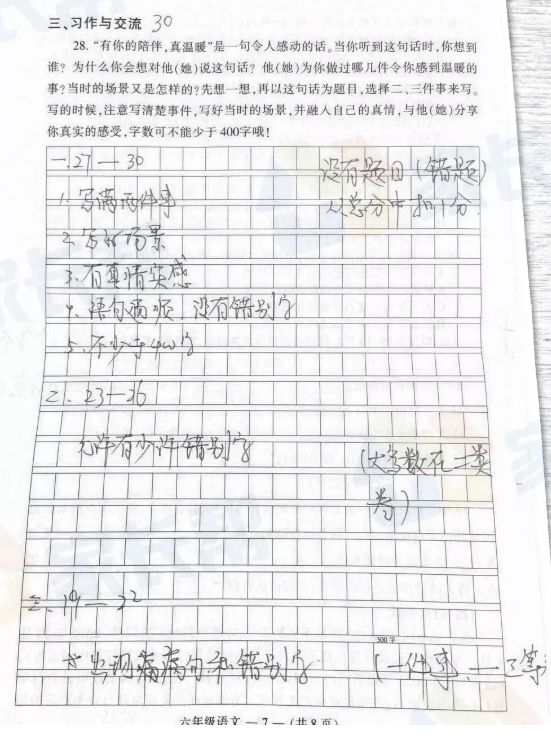 三、习作与交流 30
28. “有你的陪伴,真温暖”是一句令人感动的话。当你听到这句话时,你想到
谁?为什么你会想对他(她)说这句话?他(她)为你做过哪几件令你感到温暖的
事?当时的场景又是怎样的?先想一想,再以这句话为题目,选择二、三件事来写。
写的时候,注意写清楚事件,写好当时的场景,并融入自己的真情,与他(她)分享
你真实的感受,字数可不能少于400字哦!
一.27—30
没有题目(错题)
从总分中扣1分.
1. 写清两件事
2. 写好场景
3. 有真情实感
4. 语句通顺,没有错别字
5. 不少于400字
二、23—26
允许有少许错别字
(大多数在二类
卷)
三、19—22
300字
出现病句和错别字
(一件事,一三等
六年级语文 — 7 —(共8页)